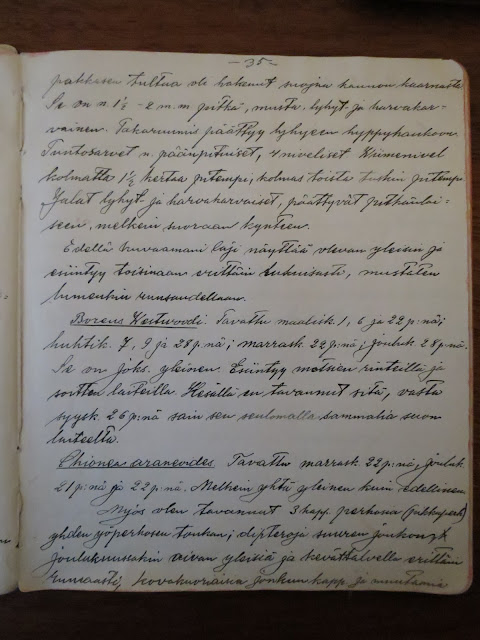 - 35 -
pakkasen tultua ole hakenut suojaa kannon kaarnasta.
Se on n. 1½ - 2 m.m. pitkä, musta, lyhyt ja harvakar-
vainen. Takaruumis päättyy lyhyeen hyppyhankoon.
Tuntosarvet n. päänpituiset, 4 niveliset. Viimenivel
kolmatta 1½ kertaa pitempi, kolmas toista tuskin pitempi.
Jalat lyhyt ja harvakarvaiset, päättyvät pitkänlai-
seen, melkein suoraan kynteen.
Edellä kuvaamani laji näyttää olevan yleisin ja
esiintyy toisinaan erittäin lukuisasti, mustaten
lumenkin runsaudellaan.
Boreus Westwoodi. Tavattu maalisk. 1, 6 ja 22 p:nä;
huhtik. 7, 9 ja 28 p:nä; marrask. 22 p:nä; jouluk. 28 p:nä.
Se on joks. yleinen. Esiintyy metsien rinteillä ja
soitten laiteilla. Kesällä en tavannut sitä, vasta
syysk. 26 p:nä sain sen seulomalla sammalia suon
laiteelta.
Chionea araneoides. Tavattu marrask. 22 p:nä, jouluk.
21 p:nä ja 22 p:nä. Melkein yhtä yleinen kuin edellinen.
Myös olen tavannut 3 kapp. perhosia
yhden yöperhosen toukan; dipteroja suuren joukon,
joulukuussakin aivan yleisiä ja kevättalvella erittäin
runsaasti, kovakuoriaisia jonkun kapp. ja muutamia